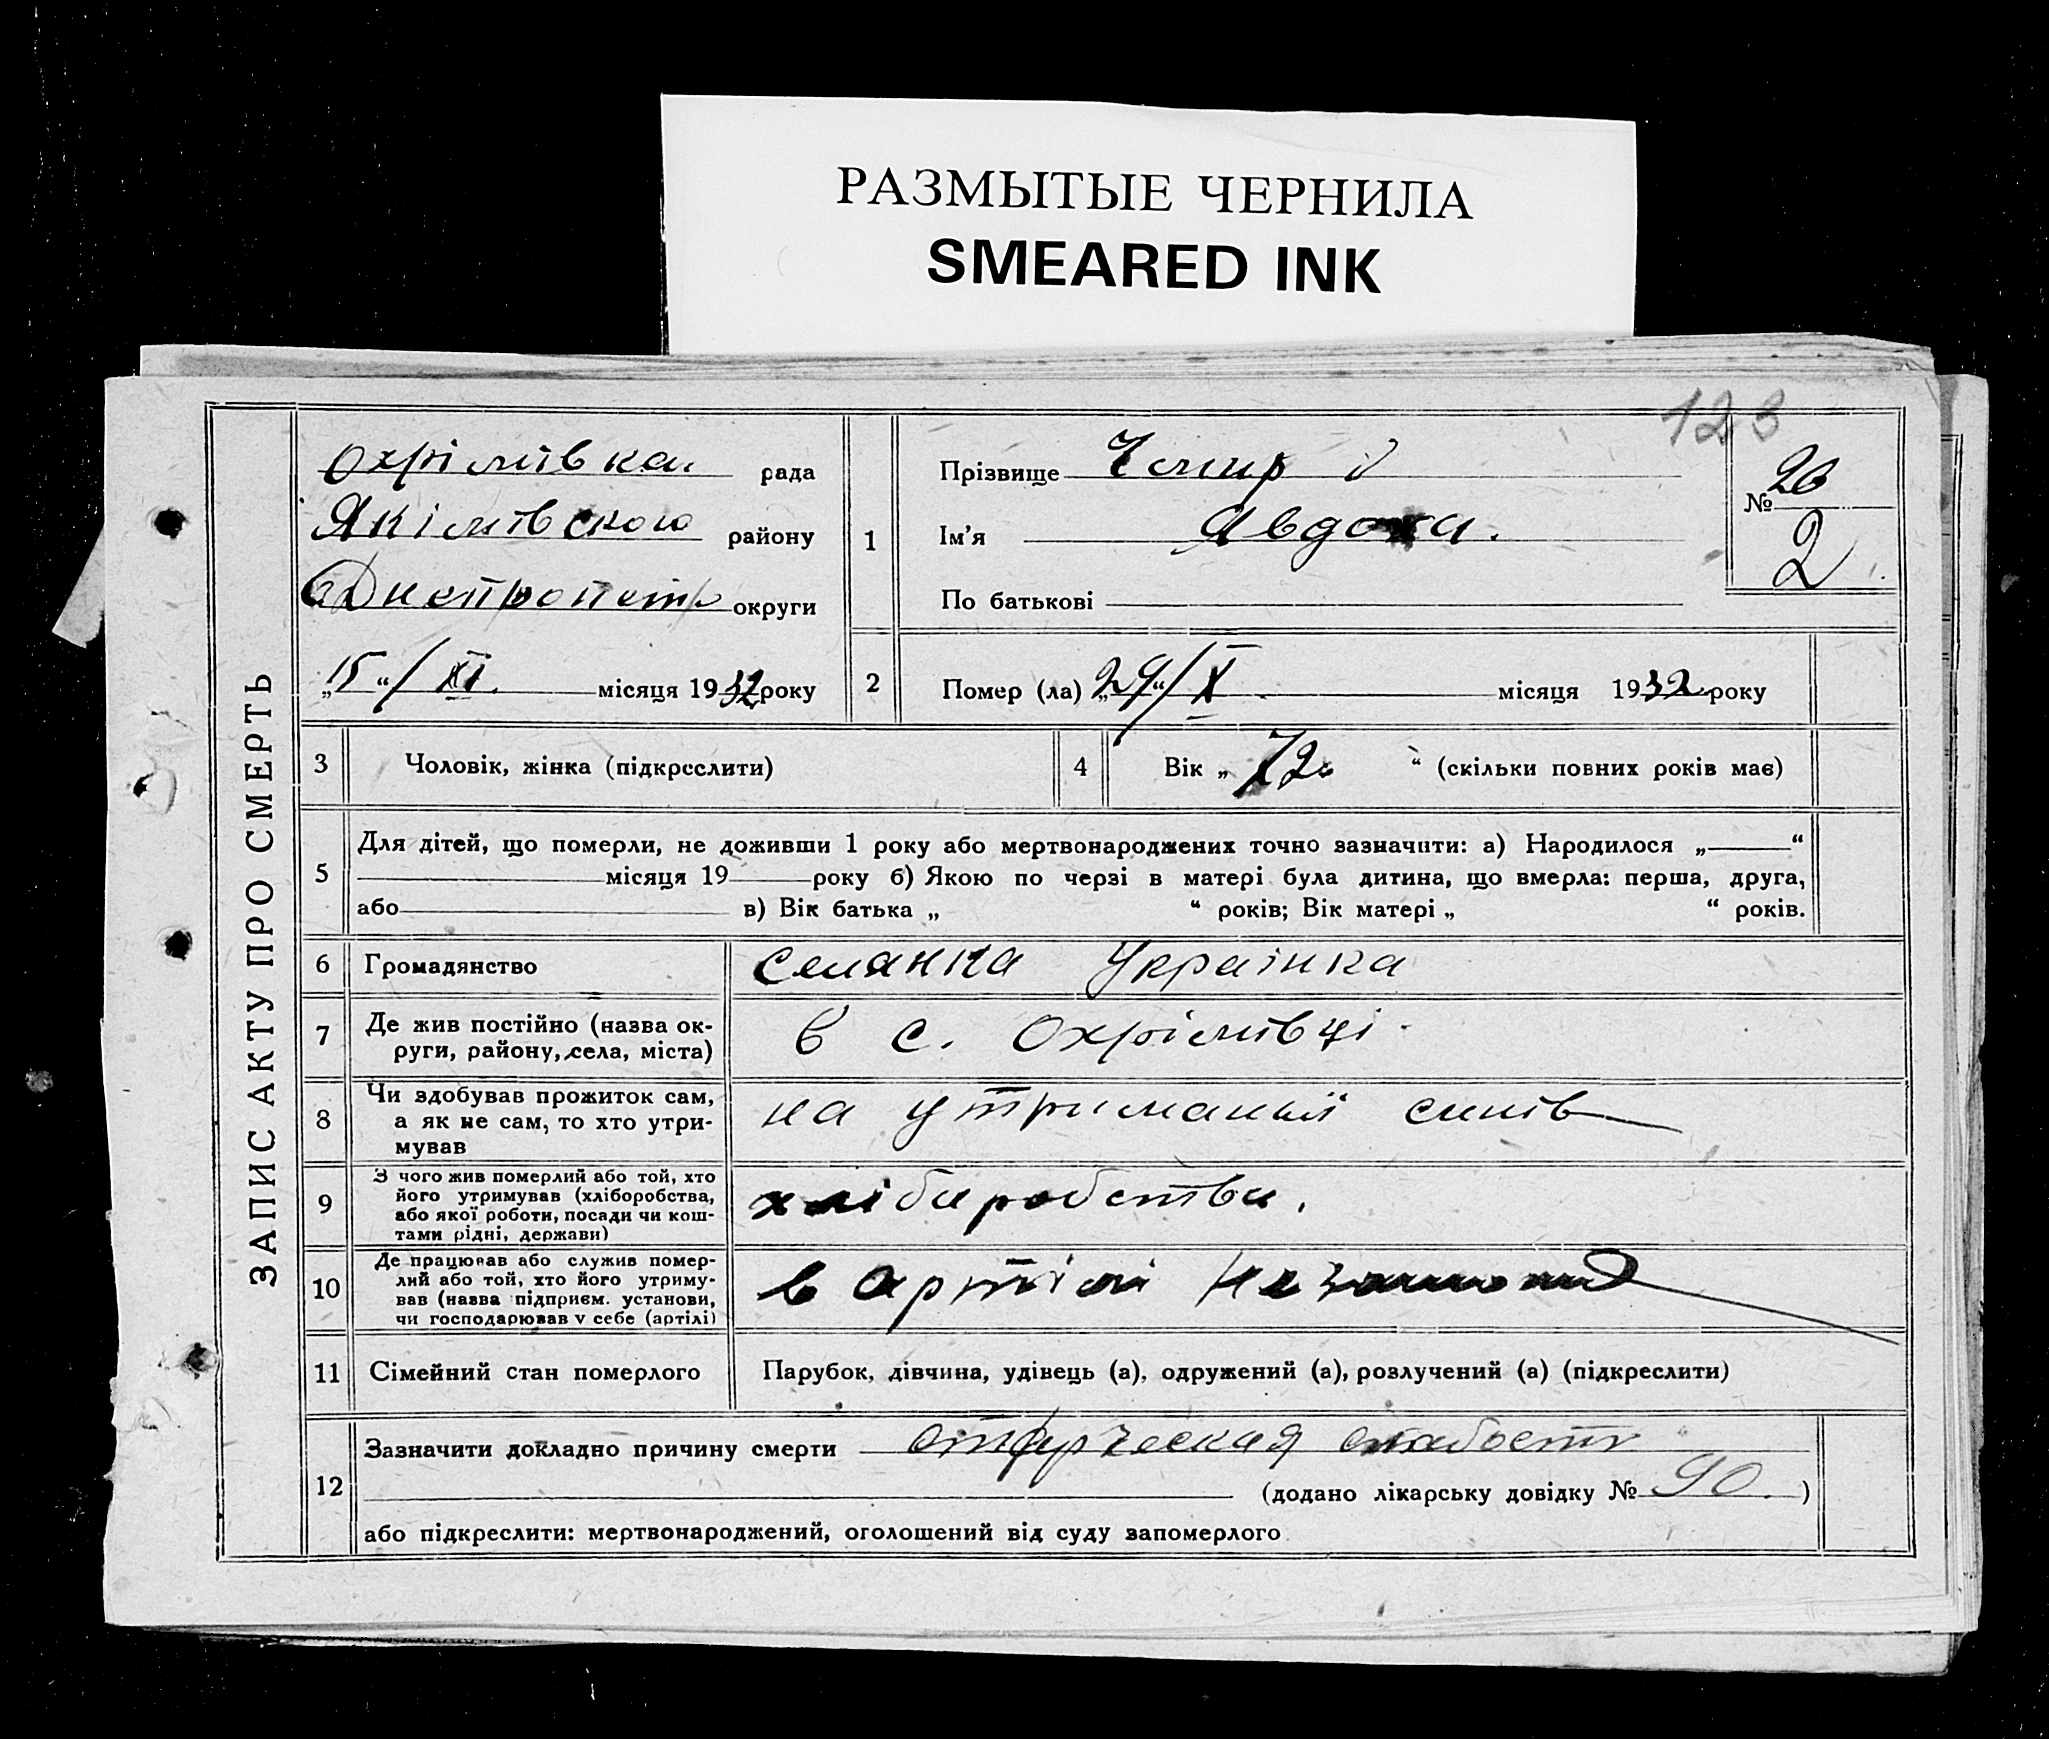 РАЗМЫТЫЕ ЧЕРНИЛА
SMEARED INK
123
ЗАПИС АКТУ ПРО СМЕРТЬ
Охрімівка рада
Якімівского району
Днепропетр округи
„15“/XI. місяця 1932 року
1 Прізвище Чемир
Ім'я Явдоха.
По батькові
№ 26
2
2 Помер (ла) „29“/X місяця 1932 року
3 Чоловік, жінка (підкреслити)
4 Вік „72“ (скільки повних років має)
5 Для дітей, що померли, не доживши 1 року або мертвонароджених точно зазначити: а) Народилося „ “
місяця 19 року б) Якою по черзі в матері була дитина, що вмерла: перша, друга,
або в) Вік батька „ “ років; Вік матері „ “ років.
6 Громадянство селянка Українка
7 Де жив постійно (назва ок-
руги, району, села, міста) в с. Охрімівці.
8 Чи здобував прожиток сам,
а як не сам, то хто утри-
мував на утриманыї синів
9 З чого жив померлий або той, хто
його утримував (хліборобства,
або якої роботи, посади чи кош-
тами рідні, держави) хлібаробства.
10 Де працював або служив помер-
лий або той, хто його утриму-
вав (назва підприєм. установи,
чи господарював у себе (артілі) в артілі
11 Сімейний стан померлого Парубок, дівчина, удівець (а), одружений (а), розлучений (а) (підкреслити)
12 Зазначити докладно причину смерти старческая слабость
(додано лікарську довідку № 90.)
або підкреслити: мертвонароджений, оголошений від суду запомерлого